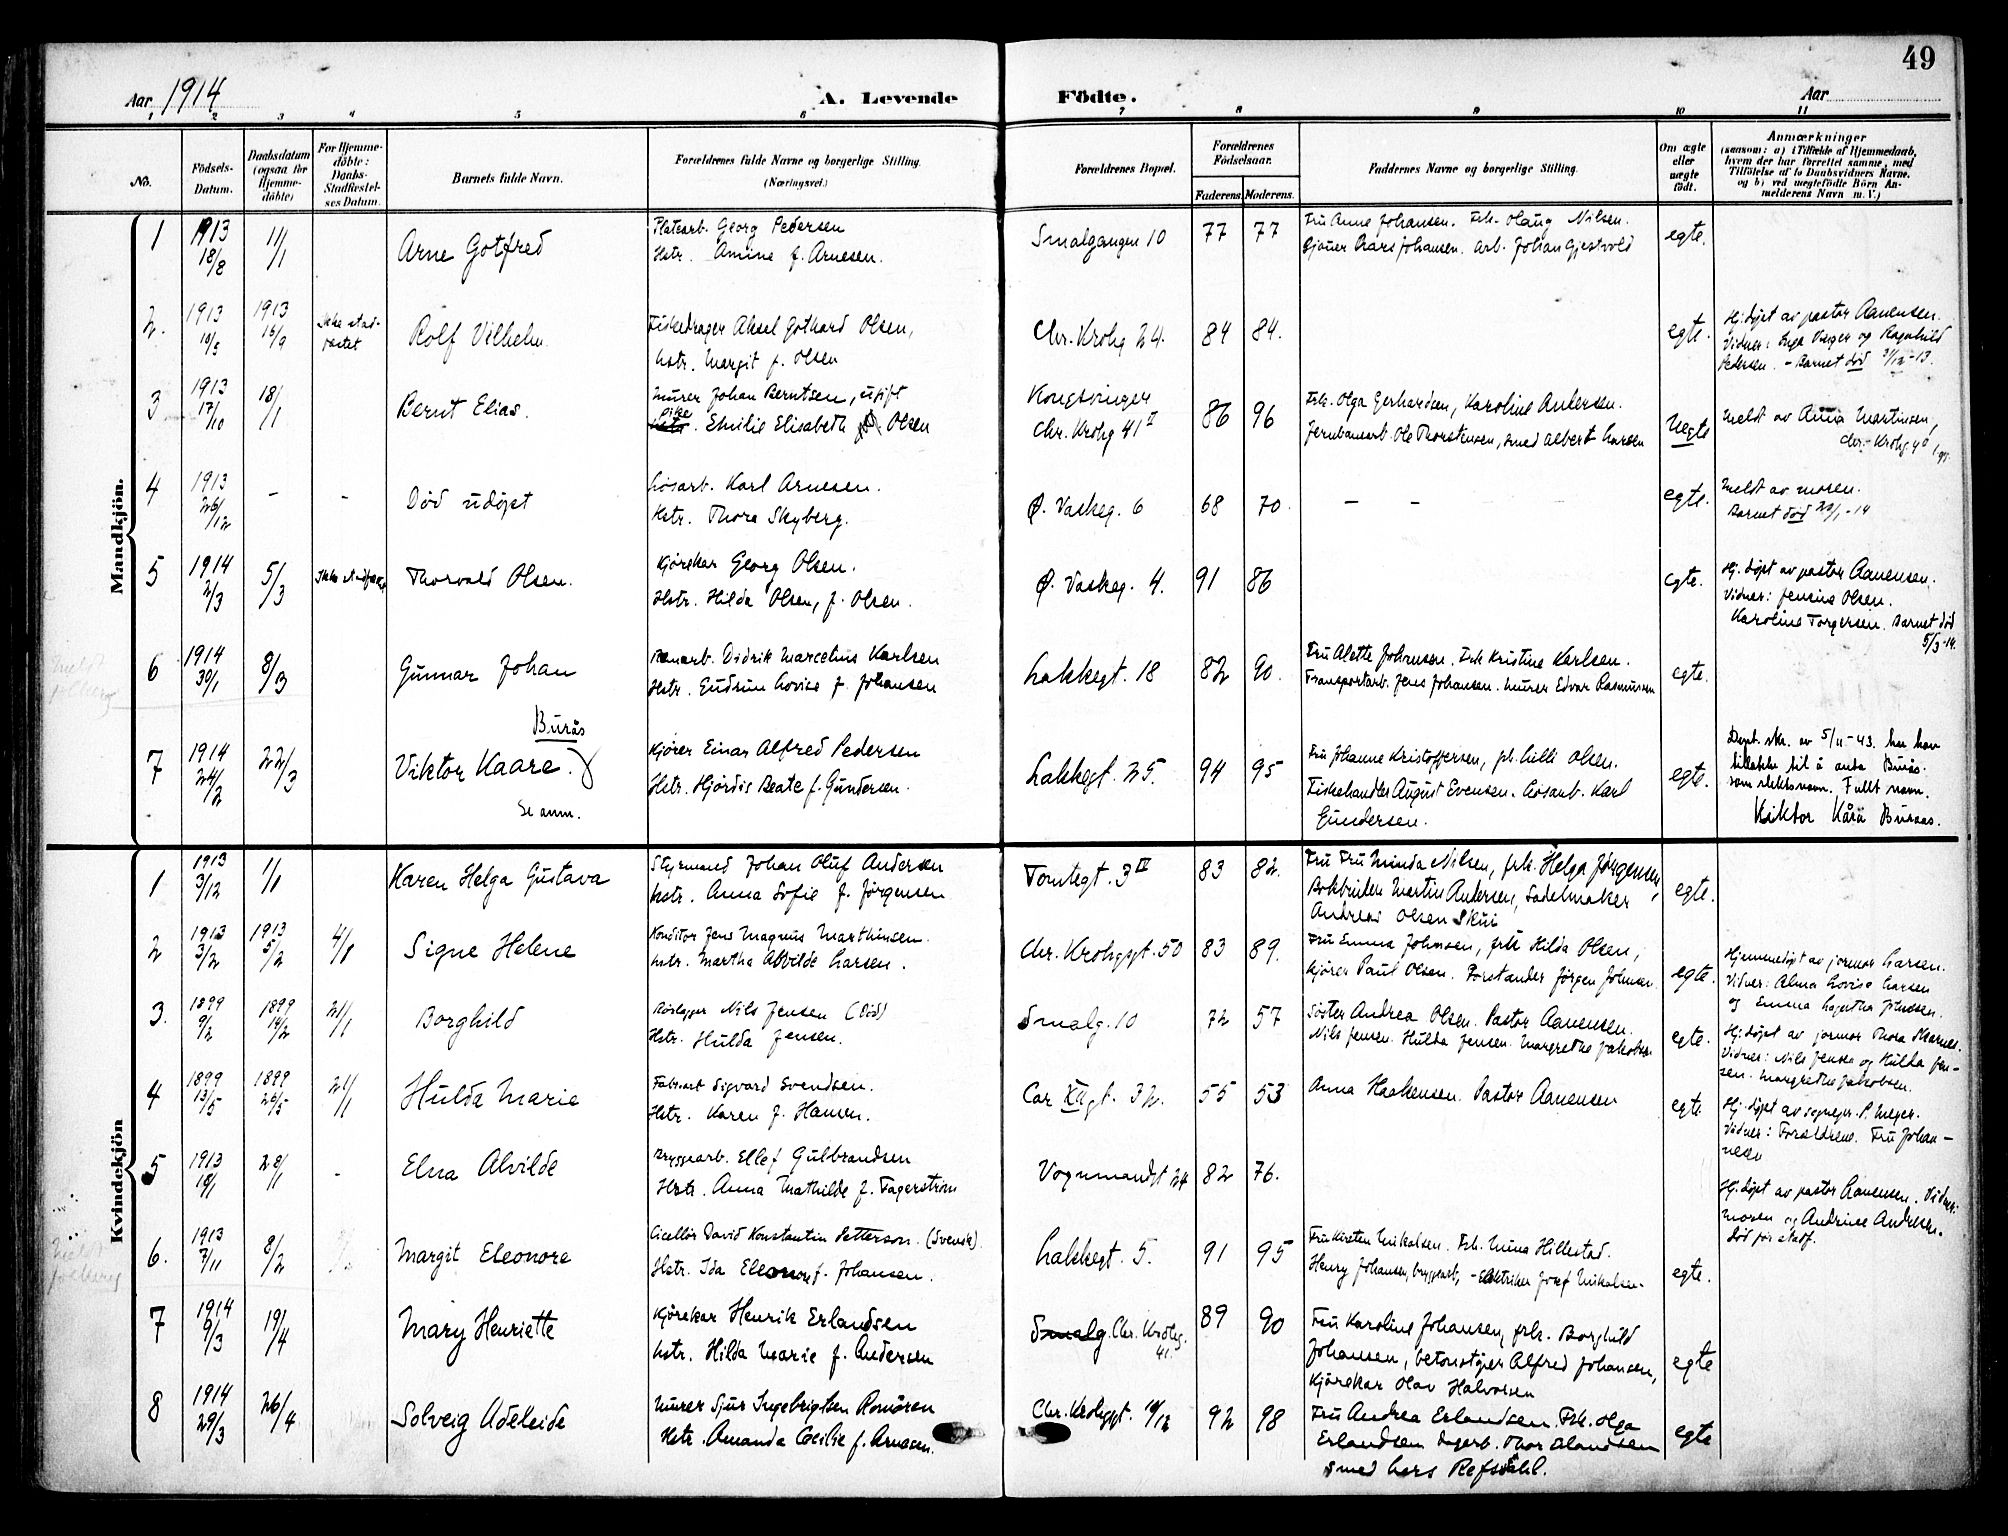 49
Aar 1914
A. Levende Födte.
Aar
1 2 3 4 5 6 7 8 9 10 11
No.
Födsels-Datum.
Daabsdatum (ogsaa for Hjemme-döbte)
For Hjemme-döbte: Daabs-Stadfæstel-ses Datum.
Barnets fulde Navn.
Forældrenes fulde Navne og borgerlige Stilling. (Næringsvei.)
Forældrenes Bopæl.
Forældrenes Födselsaar.
Faderens. Moderens.
Faddernes Navne og borgerlige Stilling.
Om ægte eller uægte födt.
Anmærkninger
(saasom: a) i Tilfælde af Hjemmedaab,
hvem der har forrettet samme, med
Tilföielse af to Daabsvidners Navne.
og b) ved uegtefödte Börn An-
melderens Navn m. V.)
Mandkjön.
1 1913 18/8 11/1 Arne Gotfred
Platearb. Georg Pedersen
Hstr. Amine f. Arnesen.
Smalgangen 10 77 77
Fru Anne Johansen. Frk. Olaug Nilsen.
Gjöuer Lars Johansen. Arb. Johan Gjestvold
egte.
2. 1913 10/5 1913 16/9 Ikke stad-festet Rolf Vilhelm
Fiskedrager Aksel Gothard Olsen,
hstr. Margit f. Olsen
Chr. Krohg 24. 84 84. egte.
Hj. döpt av pastor Aanensen.
Vidner: Inga Meyer og Ragnhild
Pedersen. - Barnet død 3/12-13.
3 1913 17/10 18/1 Bernt Elias.
Murer Johan Berntsen, ugift
pike Emilie Elisabeth Olsen
Kongsvinger
Chr. Krohg 41 II 86 96
Frk. Olga Gerhardsen, Karoline Andersen.
Jernbanearb. Ole Thorstensen, smed Albert Larsen
Uegte
Meldt av Anna Martinsen,
Chr. Krohg 40
4 1913 26/12 - - Död udöpt
Lösarb. Karl Arnesen.
Hstr. Thora Skyberg.
Ø. Vaskeg. 6 68 70. - - egte.
Meldt av moren.
Barnet död 20/1-14
5 1914 2/3 5/3 Ikke stadfæstet Thorvald Olsen.
Kjörekar Georg Olsen.
Hstr. Hilda Olsen, f. Olsen.
Ø. Vaskeg. 4. 91 86 egte.
Hj. döpt av pastor Aanensen.
Vidner: Jensine Olsen.
Karoline Torgersen. Barnet död
5/3-14.
6 1914 30/1 8/3 Gunnar Johan
Didrik Marcelius Karlsen
Hstr. Gudrun Lovise f. Johansen
Lakkegt. 18 82 90.
Fru Alette Johansen. Frk Kristine Karlsen.
Transportarb. Jens Johansen. Murer Edvar Rasmussen
egte.
7 1914 24/2 22/3
Burås
Viktor Kaare.
Se anm.
Kjörer Einar Alfred Pedersen
Hstr. Hjördis Beate f. Gundersen.
Lakkegt. 25. 94 95
Fru Johanne Kristoffersen, frk. Lilli Olsen.
Fiskehandler August Evensen. Lösarb. Karl
Gundersen.
egte.
Dept. skr. av 5/11-43. har han
tillatelse til å anta Burås.
som slektsnavn. Fullt navn.
Viktor Kåre Buraas.
Kvindekjön
1 1913 3/12 1/1 Karen Helga Gustava
Styrmand Johan Oluf Andersen
hstr. Anna Sofie f. Jörgensen
Tomtegt. 3 IV 83 82.
Fru Fru Minda Nilsen, frk. Helga Jörgensen,
Bokbinder Martin Andersen, Sadelmaker
Andreas Olsen Skui
egte.
2 1913 3/2 1913 5/2 4/1 Signe Helene
Konditor Jens Magnus Marthinsen.
hstr. Martha Alvilde Larsen.
Chr. Krohggt. 50 83 89.
Fru Emma Johnsen, frk Hilda Olsen,
Kjörer Paul Olsen. Forstander Jörgen Johnsen
egte.
Hjemmedöpt av jormor Larsen.
Vidner: Alma Lovise Larsen
og Emma Lagertha
3. 1899 9/2 1899 14/2 21/1 Borghild
Rörlegger Nils Jensen (Död)
Hstr. Hulda Jensen.
Smalg. 10 72 57
Söster Andrea Olsen. Pastor Aanensen.
Nils Jensen. Hulda Jensen. Margrethe Jakobsen
egte.
Hj. döpt av jormor Thora
Vidner: Nils Jensen og Hulda Jen-
sen. Margrethe Jakobsen.
4 1899 13/5 1899 26/5 21/1 Hulda Marie
Fabrarb Sigvard Svendsen.
Hstr. Karen f. Hansen.
Car XII gt. 32. 55 53
Anna Haakensen. Pastor Aanensen
egte.
Hj. döpt av sognepr. P. Meyer.
Vidner: Forældrene. Fru Johan-
nesen
5 1913 18/1 28/1 - Elna Alvilde
Bryggearb. Ellef Gulbrandsen
Hstr. Anna Mathilde f. Fagerström
Vognmandgt 24 82 76.
Hj. döpt av pastor Aanensen. Vidner:
Moren og Andrine Andersen.
Död för stadf.
6. 1913 7/11 8/2 Margit Eleonore
David Konstantin Petterson. (Svensk).
Hstr. Ida Eleonore f. Johansen.
Lakkegt. 5. 91 95
Fru Kirsten Mikalsen. Frk. Mina Hillestad.
Henry Johansen, bryggearb, - Elektriker Josef Mikalsen.
egte.
7 1914 9/3 19/4 Mary Henriette
Kjörekar Henrik Erlandsen
hstr. Hilda Marie f. Andersen
Smalg. Chr. Krohg.
41. 89 90
Fru Karoline Johansen, frk. Borghild
Johansen, betonstöper Alfred Johansen,
Kjörekar Olav Halvorsen
egte
8 1914 29/3 26/4 Solveig Adeleide
Murer Sjur Ingebrigtsen Romören
Hstr. Amanda Cecilie f. Arnesen.
Chr. Krohggt. 10/12 92 98
Fru Andrea Erlandsen. Frk. Olga
Erlandsen Lagerb. Thor Erlandsen
Smed Lars Refsdahl.
egte